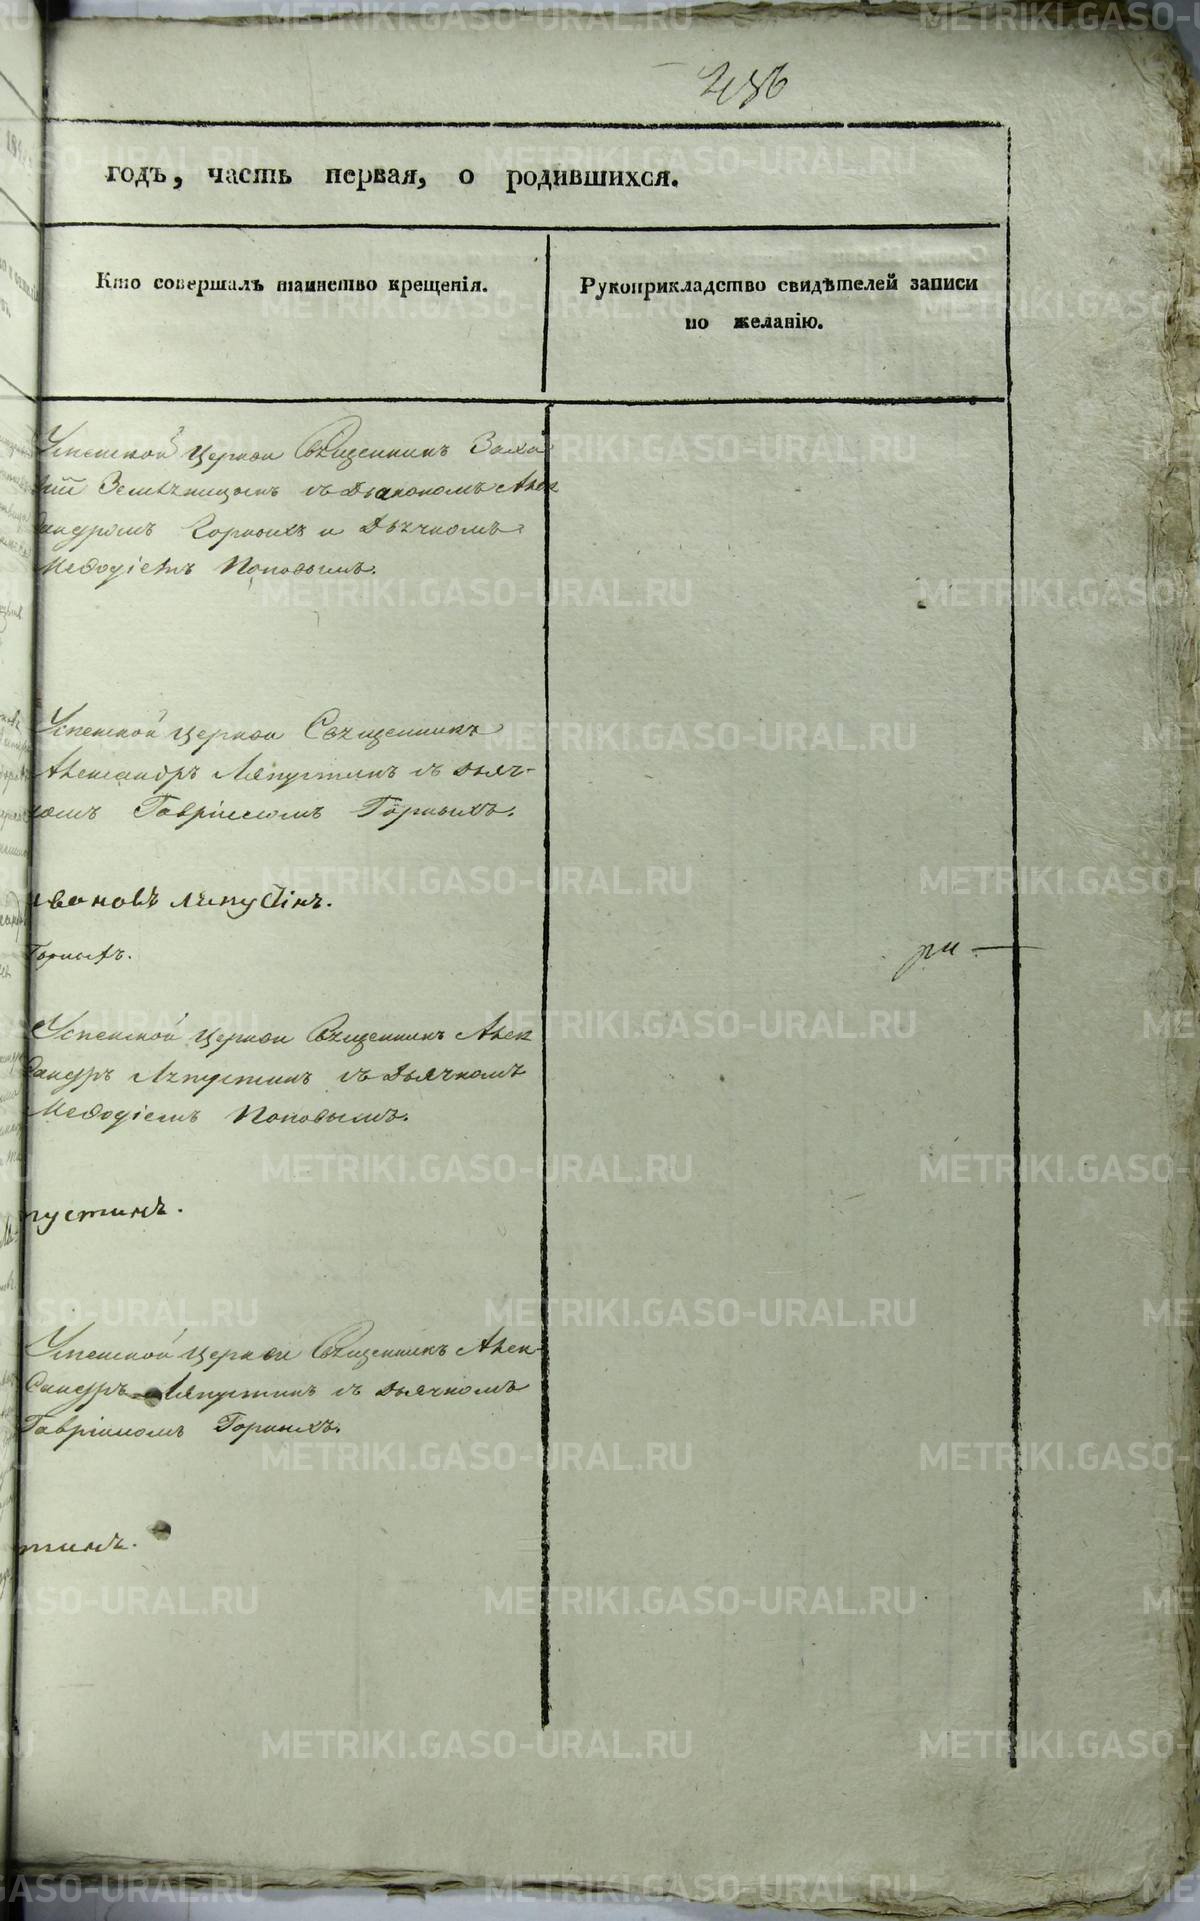 годъ, часть первая, о родившихся.
Кто совершалъ таинство крещенія.
Рукоприкладство свидѣтелей записи
по желанію.
Успенской Церкви Священникъ
съ Дьякономъ Алек
сандромъ Горныхъ и Дьячкомъ
Меѳодіемъ Поповымъ.
Успенской Церкви Священникъ
Александръ Ляпустинъ съ Дьяч-
комъ Гавріиломъ Горныхъ.
Ивановъ Ляпустінъ.
Горныхъ.
ри
Успенской Церкви Священникъ Алек
сандръ Ляпустинъ съ Дьячкомъ
Меѳодіемъ Поповымъ.
пустинъ.
Успенской Церкви Священникъ Алек-
сандръ Ляпустинъ съ Дьячкомъ
Гавріиломъ Горныхъ.
тинъ.
METRIKI.GASO-URAL.RU